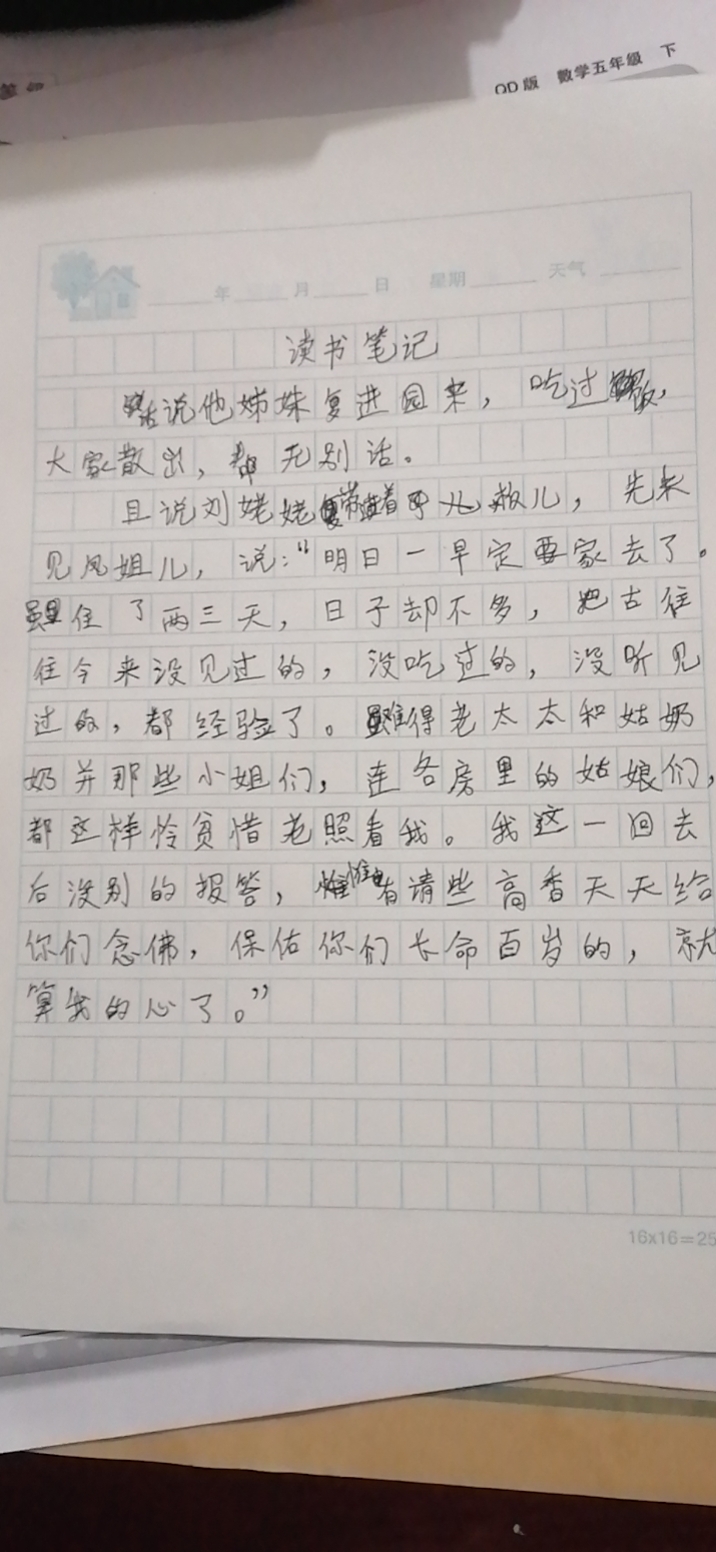 QD版 数学五年级 下
年 月 日 星期 天气
读书笔记
话说他姊妹复进园来，吃过饭，
大家散出，都无别话。
且说刘姥姥带着板儿，先来
见凤姐儿，说：“明日一早定要家去了。
虽住了两三天，日子却不多，把古往
往今来没见过的，没吃过的，没听见
过的，都经验了。难得老太太和姑奶
奶并那些小姐们，连各房里的姑娘们，
都这样怜贫惜老照看我。我这一回去
后没别的报答，惟有请些高香天天给
你们念佛，保佑你们长命百岁的，就
算我的心了。”
16x16=25